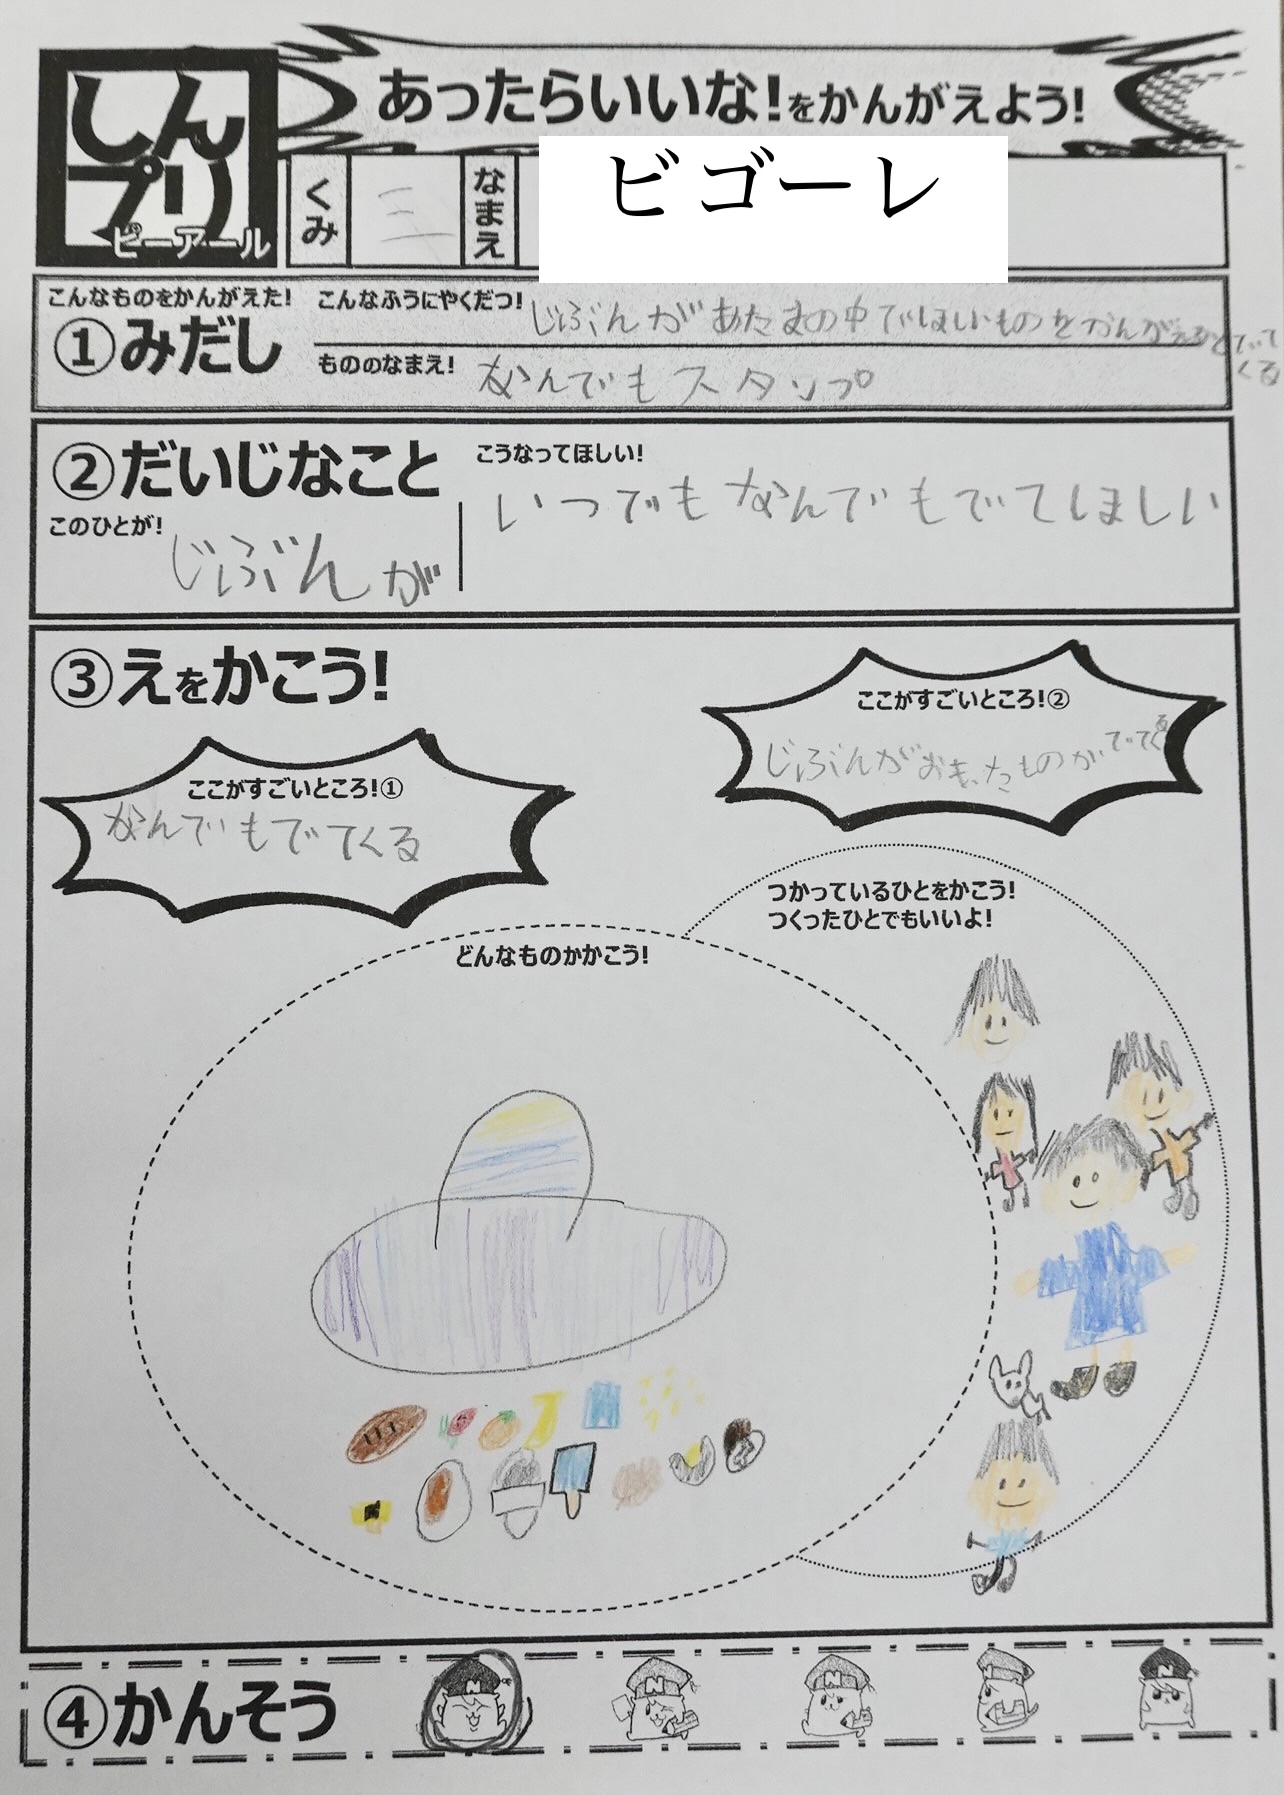 しん
プリ
ピーアール
あったらいいな!をかんがえよう!
くみ
三
なまえ
ビゴーレ
こんなものをかんがえた!
①みだし
こんなふうにやくだつ!
じぶんがあたまの中でほしいものをかんがえるとでてくる
もののなまえ!
なんでもスタップ
②だいじなこと
このひとが!
じぶんが
こうなってほしい!
いつでもなんでもでてほしい
③えをかこう!
ここがすごいところ!①
なんでもでてくる
ここがすごいところ!②
じぶんがおもったものがでてくる
つかっているひとをかこう!
つくったひとでもいいよ!
どんなものかかこう!
④かんそう
N
N
N
N
N